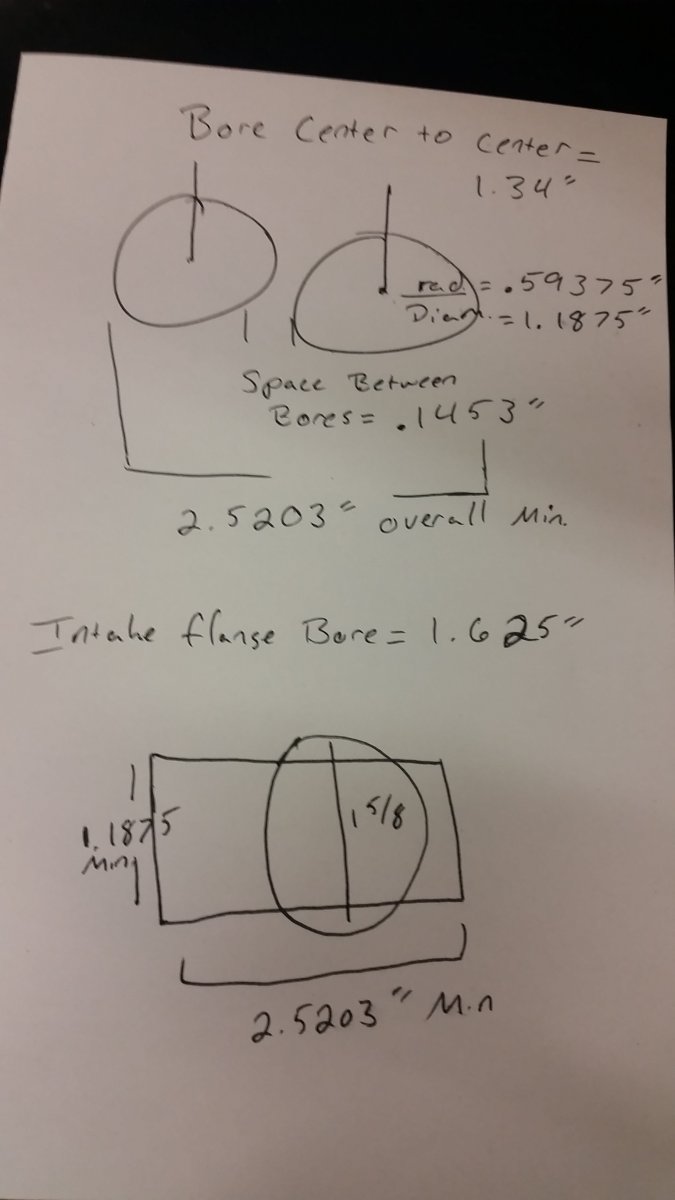 Bore Center to center =
1.34"
rad. = .59375"
Diam. = 1.1875"
Space Between
Bores = .1453"
2.5203" overall Min.
Intake flange Bore = 1.625"
1 5/8
1.1875
Min
2.5203" Min